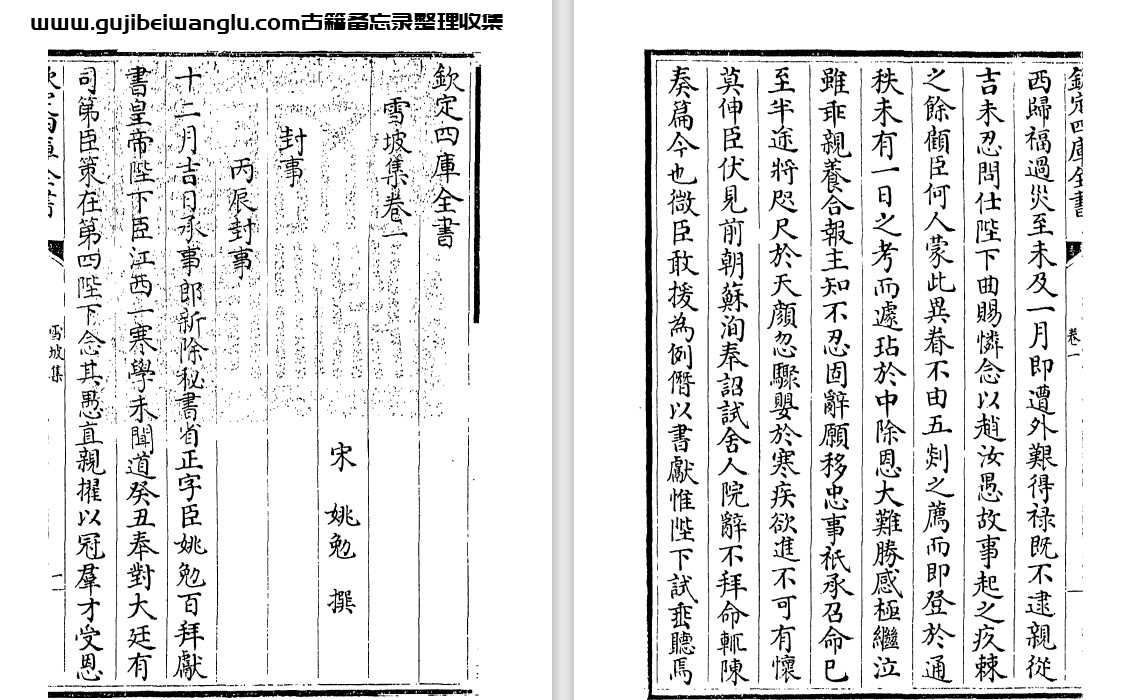 www.gujibeiwanglu.com古籍备忘录整理收集
欽定四庫全書
雪坡集卷一
宋 姚勉 撰
封事
丙辰封事
十二月吉日承事郎新除秘書省正字臣姚勉百拜獻
書皇帝陛下臣江西一寒學未聞道癸丑奉對大廷有
司第臣策在第四陛下念其愚直親擢以冠羣才受恩
雪坡集
一
欽定四庫全書
卷一
西歸福過災至未及一月即遭外艱得禄既不逮親從
吉未忍問仕陛下曲賜憐念以趙汝愚故事起之疚棘
之餘顧臣何人蒙此異眷不由五剡之薦而即登於通
秩未有一日之考而遽玷於中除恩大難勝感極繼泣
雖乖親養合報主知不忍固辭願移忠事祇承召命已
至半途將咫尺於天顔忽驟嬰於寒疾欲進不可有懷
莫伸臣伏見前朝蘇洵奉詔試舍人院辭不拜命輒陳
奏篇今也微臣敢援為例僭以書獻惟陛下試垂聽焉